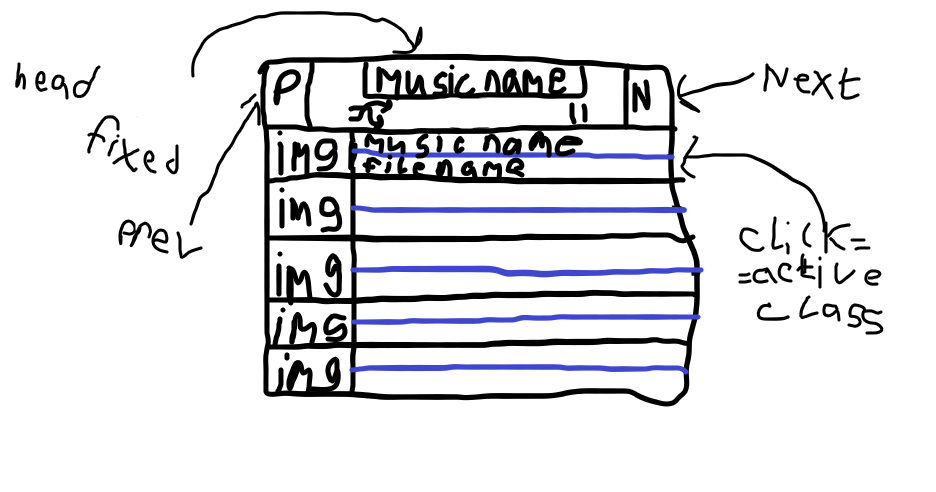 head
fixed
prev
P
Music name
N
Next
img
music name
file name
img
img
img
img
click=
=active
class